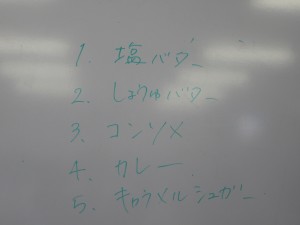 1. 塩バター
2. しょうゆバター
3. コンソメ
4. カレー
5. キャラメルシュガー